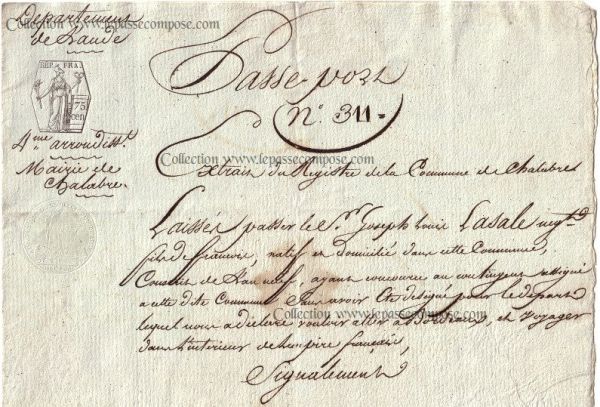 Departement
de L'aude
REP. FRA.
75
cen
4.me arrondisst.
Mairie de
Chalabre
Passe-port
N.° 311.
Extrait du Registre de la Commune de Chalabre
Laissés passer le S.r Joseph Louis Lasale
fils de francois, natif et domicilié dans cette Commune,
Conscrit de l'an neuf, ayant concourue au contingent assigné
a cette dite Commune sans avoir été désigné pour le départ
lequel nous a declaré vouloir aller a Bordeaux, et voyager
dans l'interieur de l'empire français,
Signalement
Collection www.lepassecompose.com
Collection www.lepassecompose.com
Collection www.lepassecompose.com
Collection www.lepassecompose.com